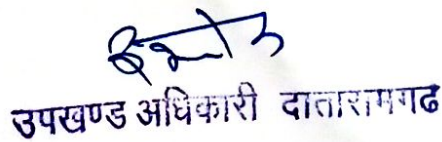 उपखण्ड अधिकारी दातारामगढ